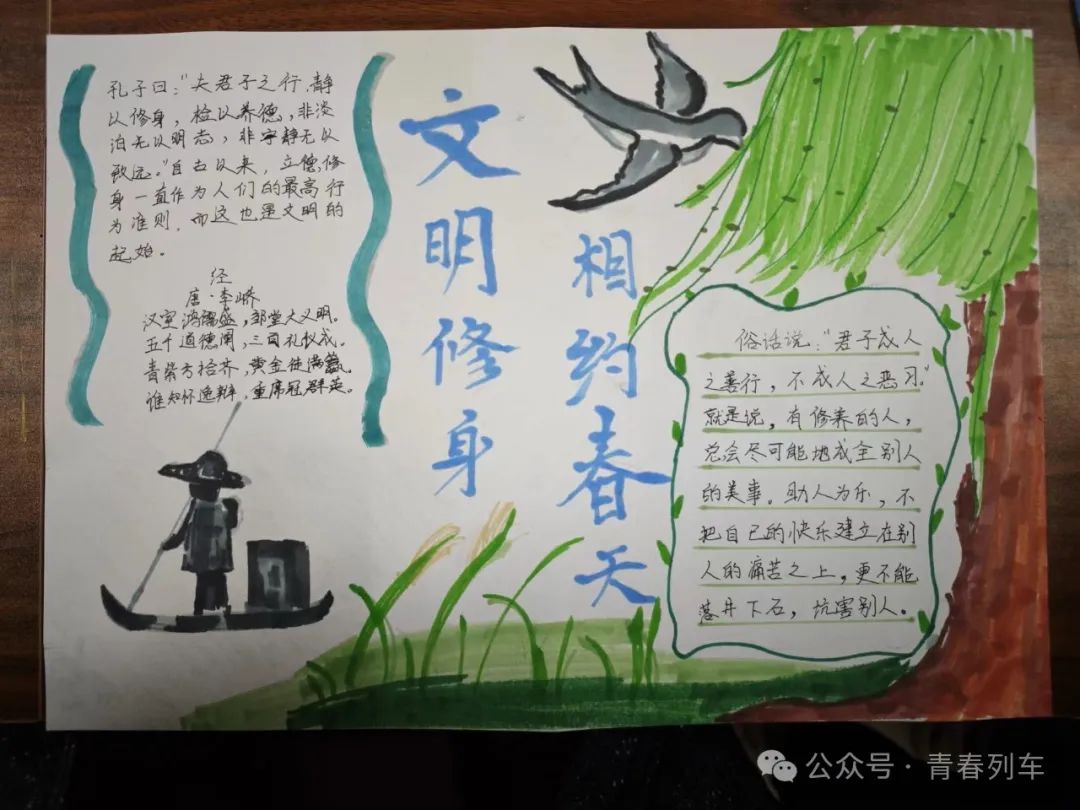 孔子曰："夫君子之行,静
以修身，检以养德,非淡
泊无以明志，非宁静无以
致远。"自古以来，立德修
身一直作为人们的最高行
为准则，而这也是文明的
起始。
经
唐·李峤
汉室鸿儒盛，邹堂大义明。
五千道德阐，三百礼仪成。
青紫方拾芥，黄金徒满籯。
谁知怀逸辩，重席冠群英。
文明修身
相约春天
俗话说："君子成人
之善行，不成人之恶习。"
就是说，有修养的人，
总会尽可能地成全别人
的美事。助人为乐，不
把自己的快乐建立在别
人的痛苦之上，更不能
落井下石，坑害别人。
公众号·青春列车